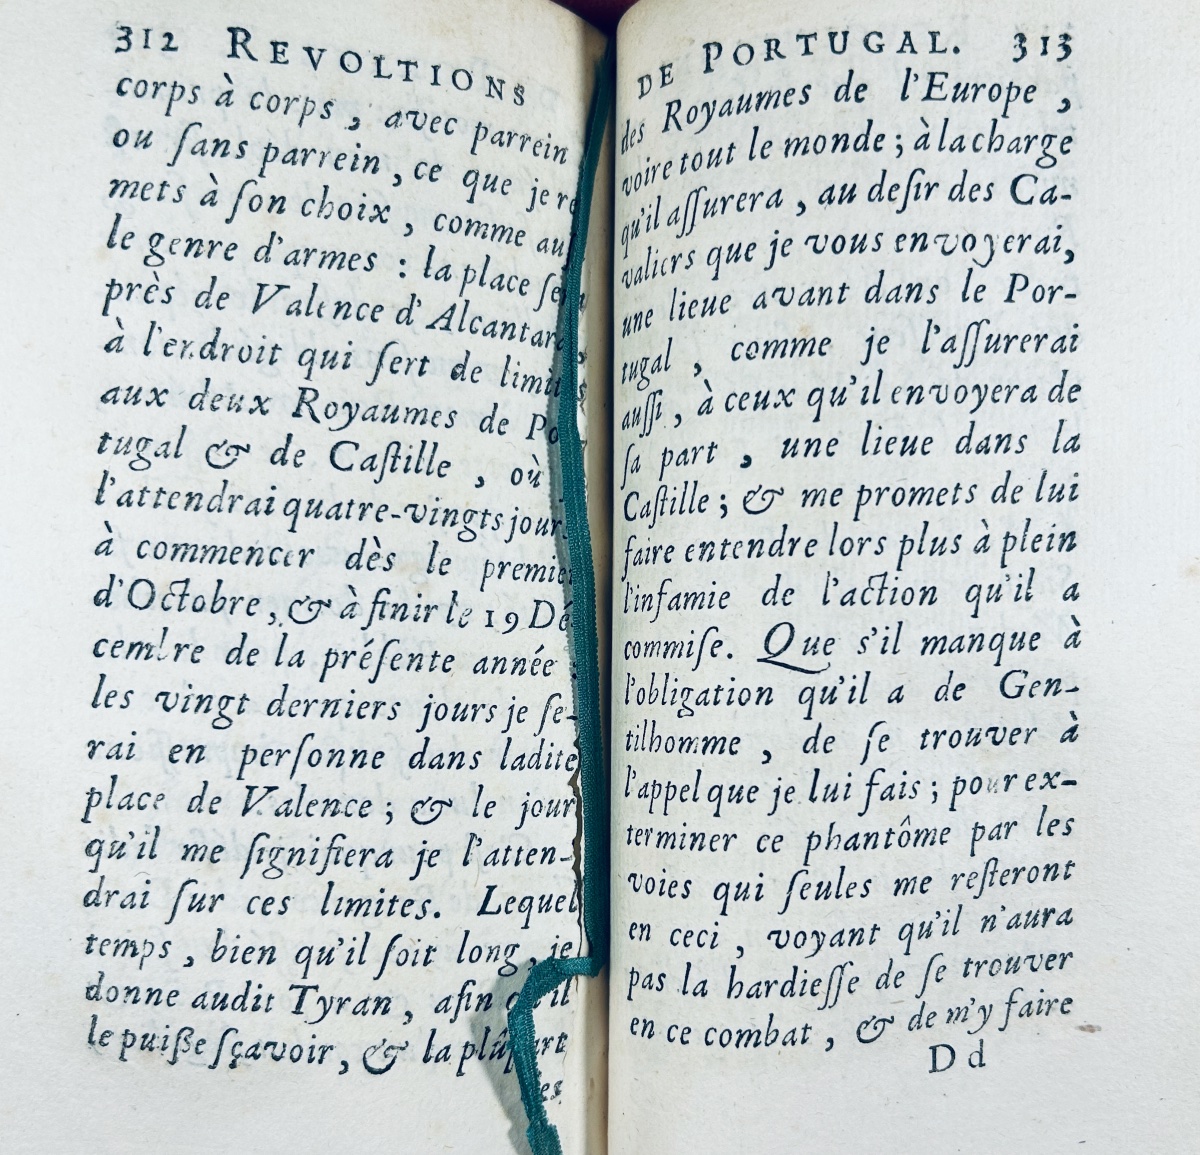 312 REVOLTIONS
corps à corps, avec parrein
ou ſans parrein, ce que je
mets à ſon choix, comme au
le genre d'armes : la place
près de Valence d'Alcantara,
à l'endroit qui ſert de limites
aux deux Royaumes de
tugal & de Caſtille, où
l'attendrai quatre-vingts jours
à commencer dès le premier
d'Octobre, & à finir le 19 Dé
cembre de la préſente année :
les vingt derniers jours je ſe-
rai en perſonne dans ladite
place de Valence ; & le jour
qu'il me ſignifiera je l'atten-
drai ſur ces limites. Lequel
temps, bien qu'il ſoit long, je
donne audit Tyran, afin qu'il
le puiße ſçavoir, & la plûpart
DE PORTUGAL. 313
des Royaumes de l'Europe,
voire tout le monde ; à la charge
qu'il aſſurera, au deſir des Ca-
valiers que je vous envoyerai,
une lieue avant dans le Por-
tugal, comme je l'aſſurerai
auſſi, à ceux qu'il envoyera de
ſa part, une lieue dans la
Caſtille ; & me promets de lui
faire entendre lors plus à plein
l'infamie de l'action qu'il a
commiſe. Que s'il manque à
l'obligation qu'il a de Gen-
tilhomme, de ſe trouver à
l'appel que je lui fais ; pour ex-
terminer ce phantôme par les
voies qui ſeules me reſteront
en ceci, voyant qu'il n'aura
pas la hardieſſe de ſe trouver
en ce combat, & de m'y faire
Dd